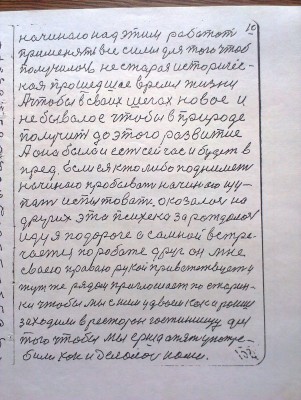 10
начинаю над этим работат
применять все силы для того чтоб
получилось не старая историчес-
ная прошедшая время жизни
А чтобы в своих шагах новое и
небывалое чтобы в природе
получит до этого развитие
А она была и есть сейчас и будет в
пред. Если я кто либо поднимет
начинаю пробыват начинаю щу-
пат испытоват оказался на
других эта психека заработала
иду я по дороге а самной встре-
чается по работе друг он мне
сваею праваю рукой приветствует и
тут же рядом приглошает по старин-
ки чтобы мы сним удвоем как ореши
заходили в ресторон гостиницу для
того чтобы мы срид взяли употре-
били как и деловой